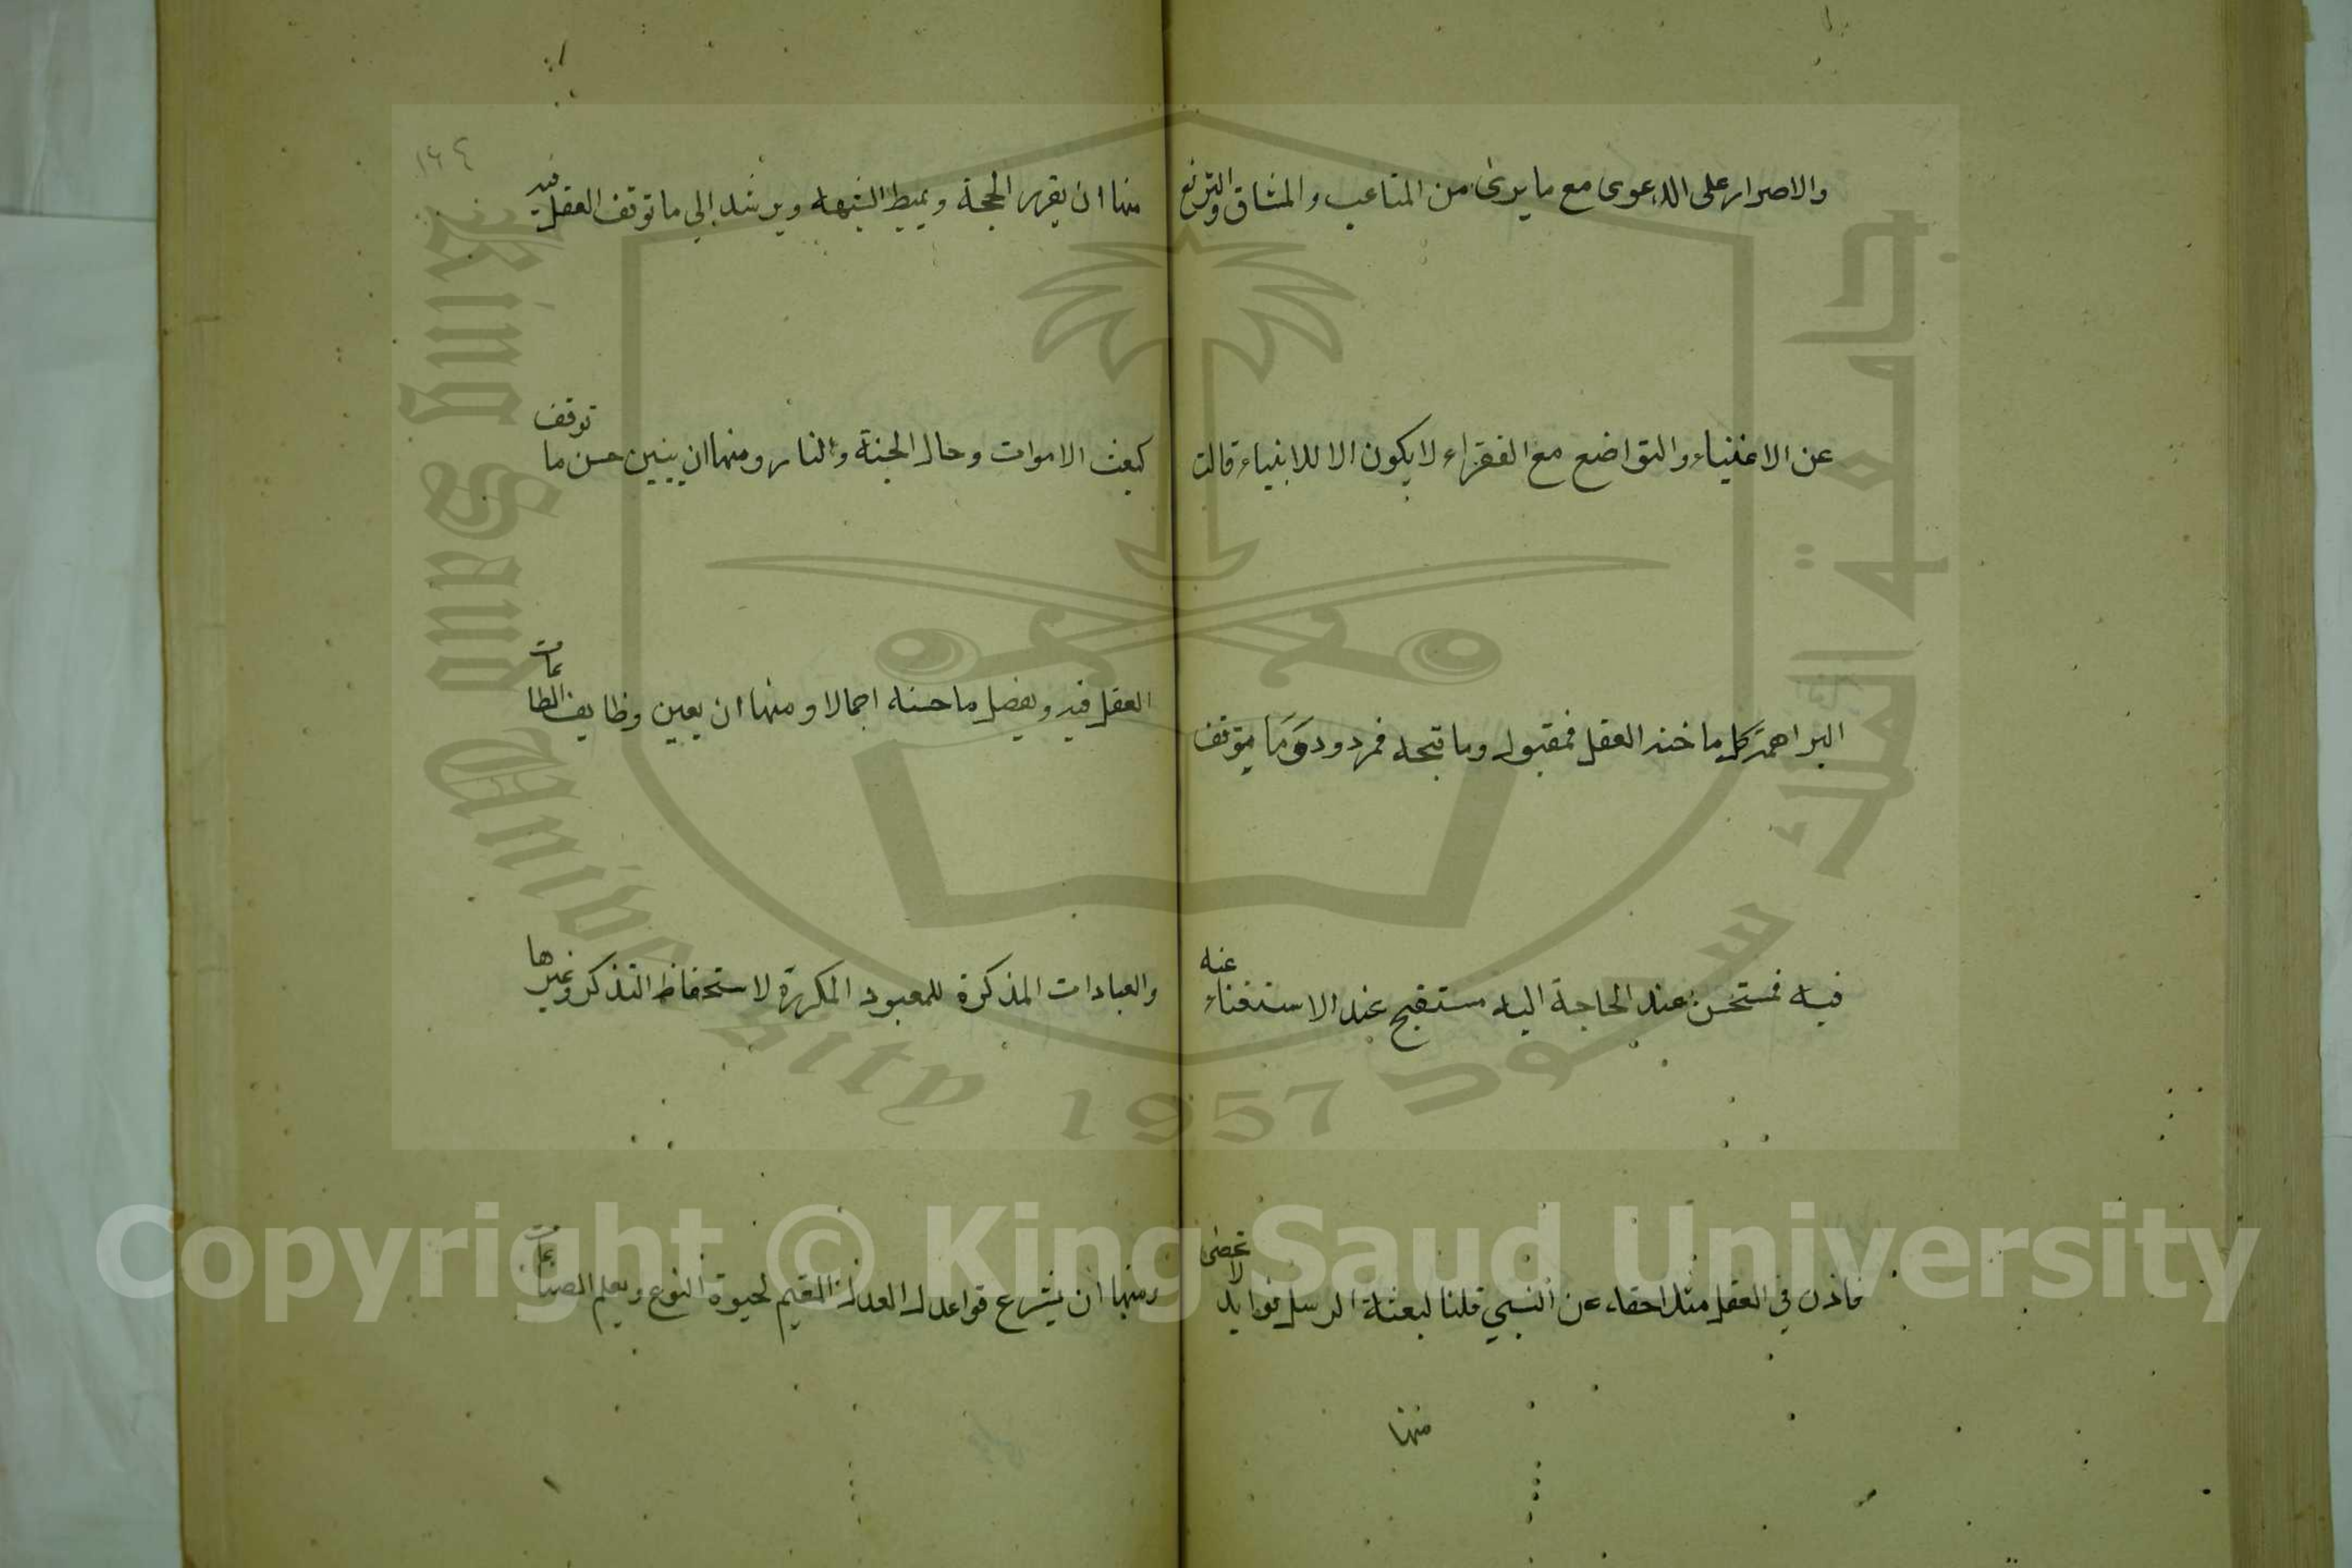 والاصرار على الدعوى مع ما يرى من المتاعب والمشاق والترفع
عن الاغنياء والتواضع مع الفقراء لا يكون الا للانبياء قالت
البراهمة كل ما حسنه العقل فمقبول وما قبحه فمردود وما يتوقف
فيه فمستحسن عند الحاجة اليه مستقبح عند الاستغناء عنه
فاذن في العقل مندوحة عن النبي قلنا لبعثة الرسل فوايد لا تحصى
منها
١٦٤
منها ان يقرر الحجة ويميط الشبهه ويرشد الي ما توقف العقل فيه
كبعث الاموات وحال الجنة والنار ومنها ان يبين حسن ما توقف
العقل فيه ويفصل ما حسنه اجمالا ومنها ان يعين وظايف الطاعات
والعبادات المذكرة للمعبود المكررة لاستحفاظ التذكر وغيرها
ومنها ان يشرع قواعد العدل المقيم لحيوة النوع ويعلم الصناعات
جامعة الملك سعود
King Saud University 1957
Copyright © King Saud University